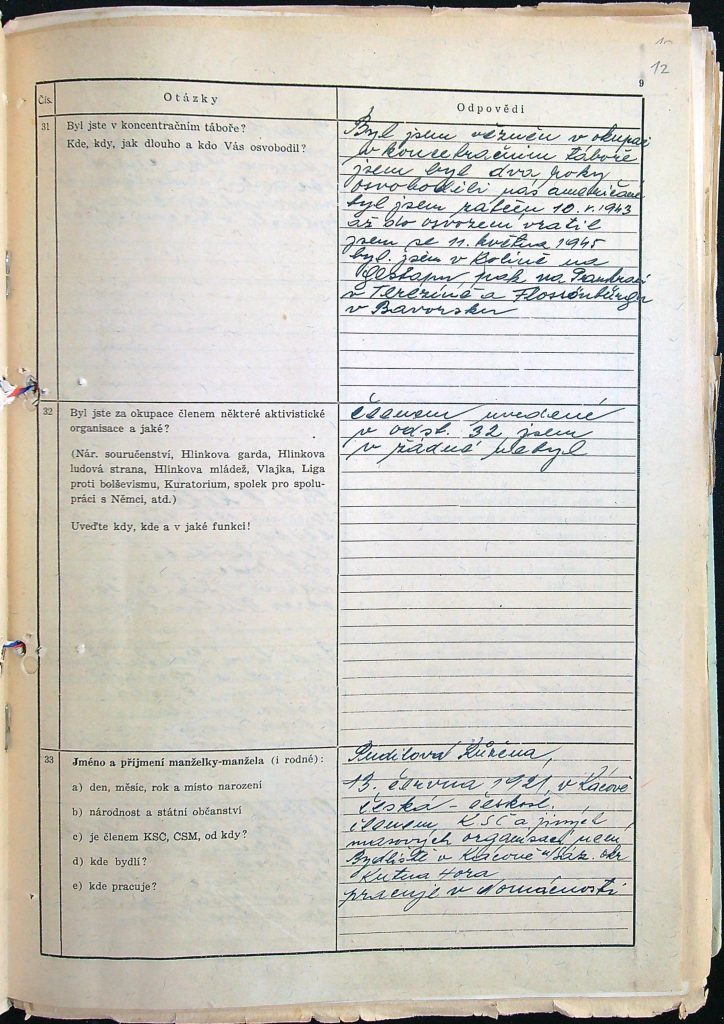 12
9
Čís.
Otázky
Odpovědi
31
Byl jste v koncentračním táboře?
Kde, kdy, jak dlouho a kdo Vás osvobodil?
Byl jsem vězněn v okupaci
v koncetračním táboře
jsem byl dva roky
osvobodili nás američané
byl jsem zatčen 10. V. 1943
až do osvození vrátil
jsem se 11. května 1945
byl. jsem v Kolíně na
gestapu pak na Pankraci
v Terezíně a Flossönbürgu
v Bavorsku
32
Byl jste za okupace členem některé aktivistické
organisace a jaké?
(Nár. souručenství, Hlinkova garda, Hlinkova
ludová strana, Hlinkova mládež, Vlajka, Liga
proti bolševismu, Kuratorium, spolek pro spolu-
práci s Němci, atd.)
Uveďte kdy, kde a v jaké funkci!
členem uvedené
v odst. 32 jsem
v žádné nebyl
33
Jméno a příjmení manželky-manžela (i rodné):
a) den, měsíc, rok a místo narození
b) národnost a státní občanství
c) je členem KSČ, ČSM, od kdy?
d) kde bydlí?
e) kde pracuje?
Růžena,
13. června 1921, v Kácově
česká - českosl.
členem KSČ a jiných
masových organisací není
Bydliště v Kácově n/Sáz. okr.
Kutná Hora
pracuje v domácnosti